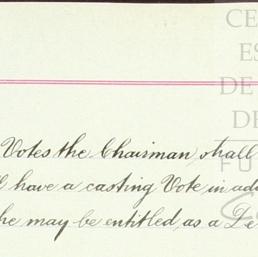 CE
ES
DE
DE
FU
Votes the Chairman shall
have a casting Vote in ad
he may be entitled, as a De